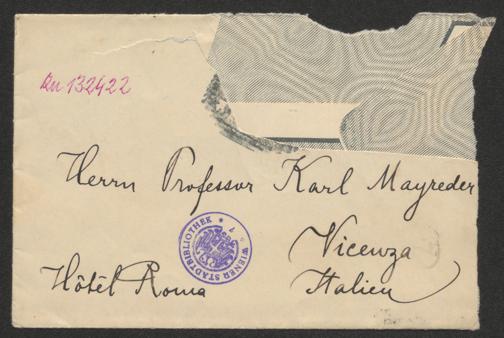 132422
Herrn Professor Karl Mayreder
Vicenza
Hôtel Roma
Italien
WIENER STADTBIBLIOTHEK * 7 *